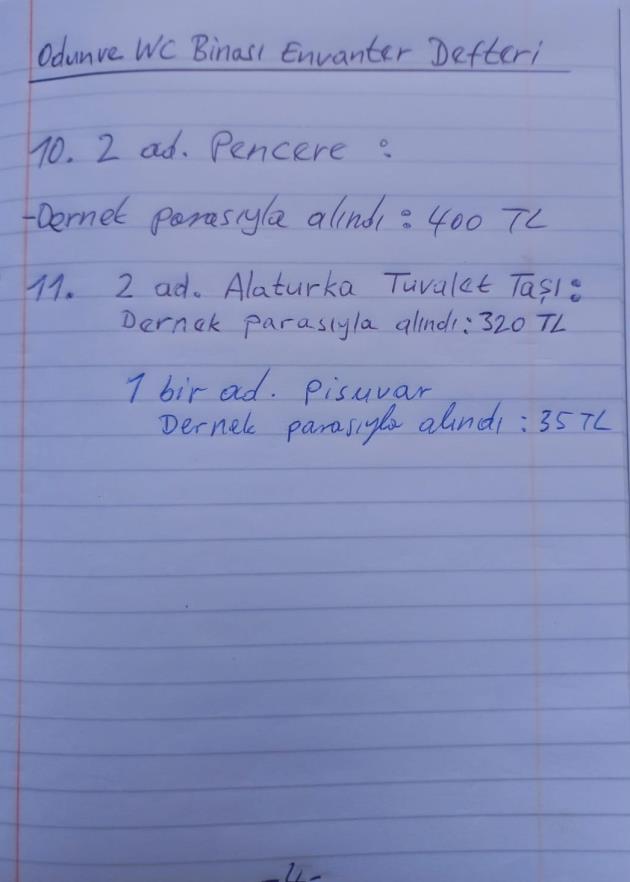 Odunve WC Binası Envanter Defteri
10. 2 ad. Pencere :
-Dernek parasıyla alındı : 400 TL
11. 2 ad. Alaturka Tuvalet Taşı :
Dernek parasıyla alındı : 320 TL
1 bir ad. Pisuvar
Dernek parasıyla alındı : 35 TL